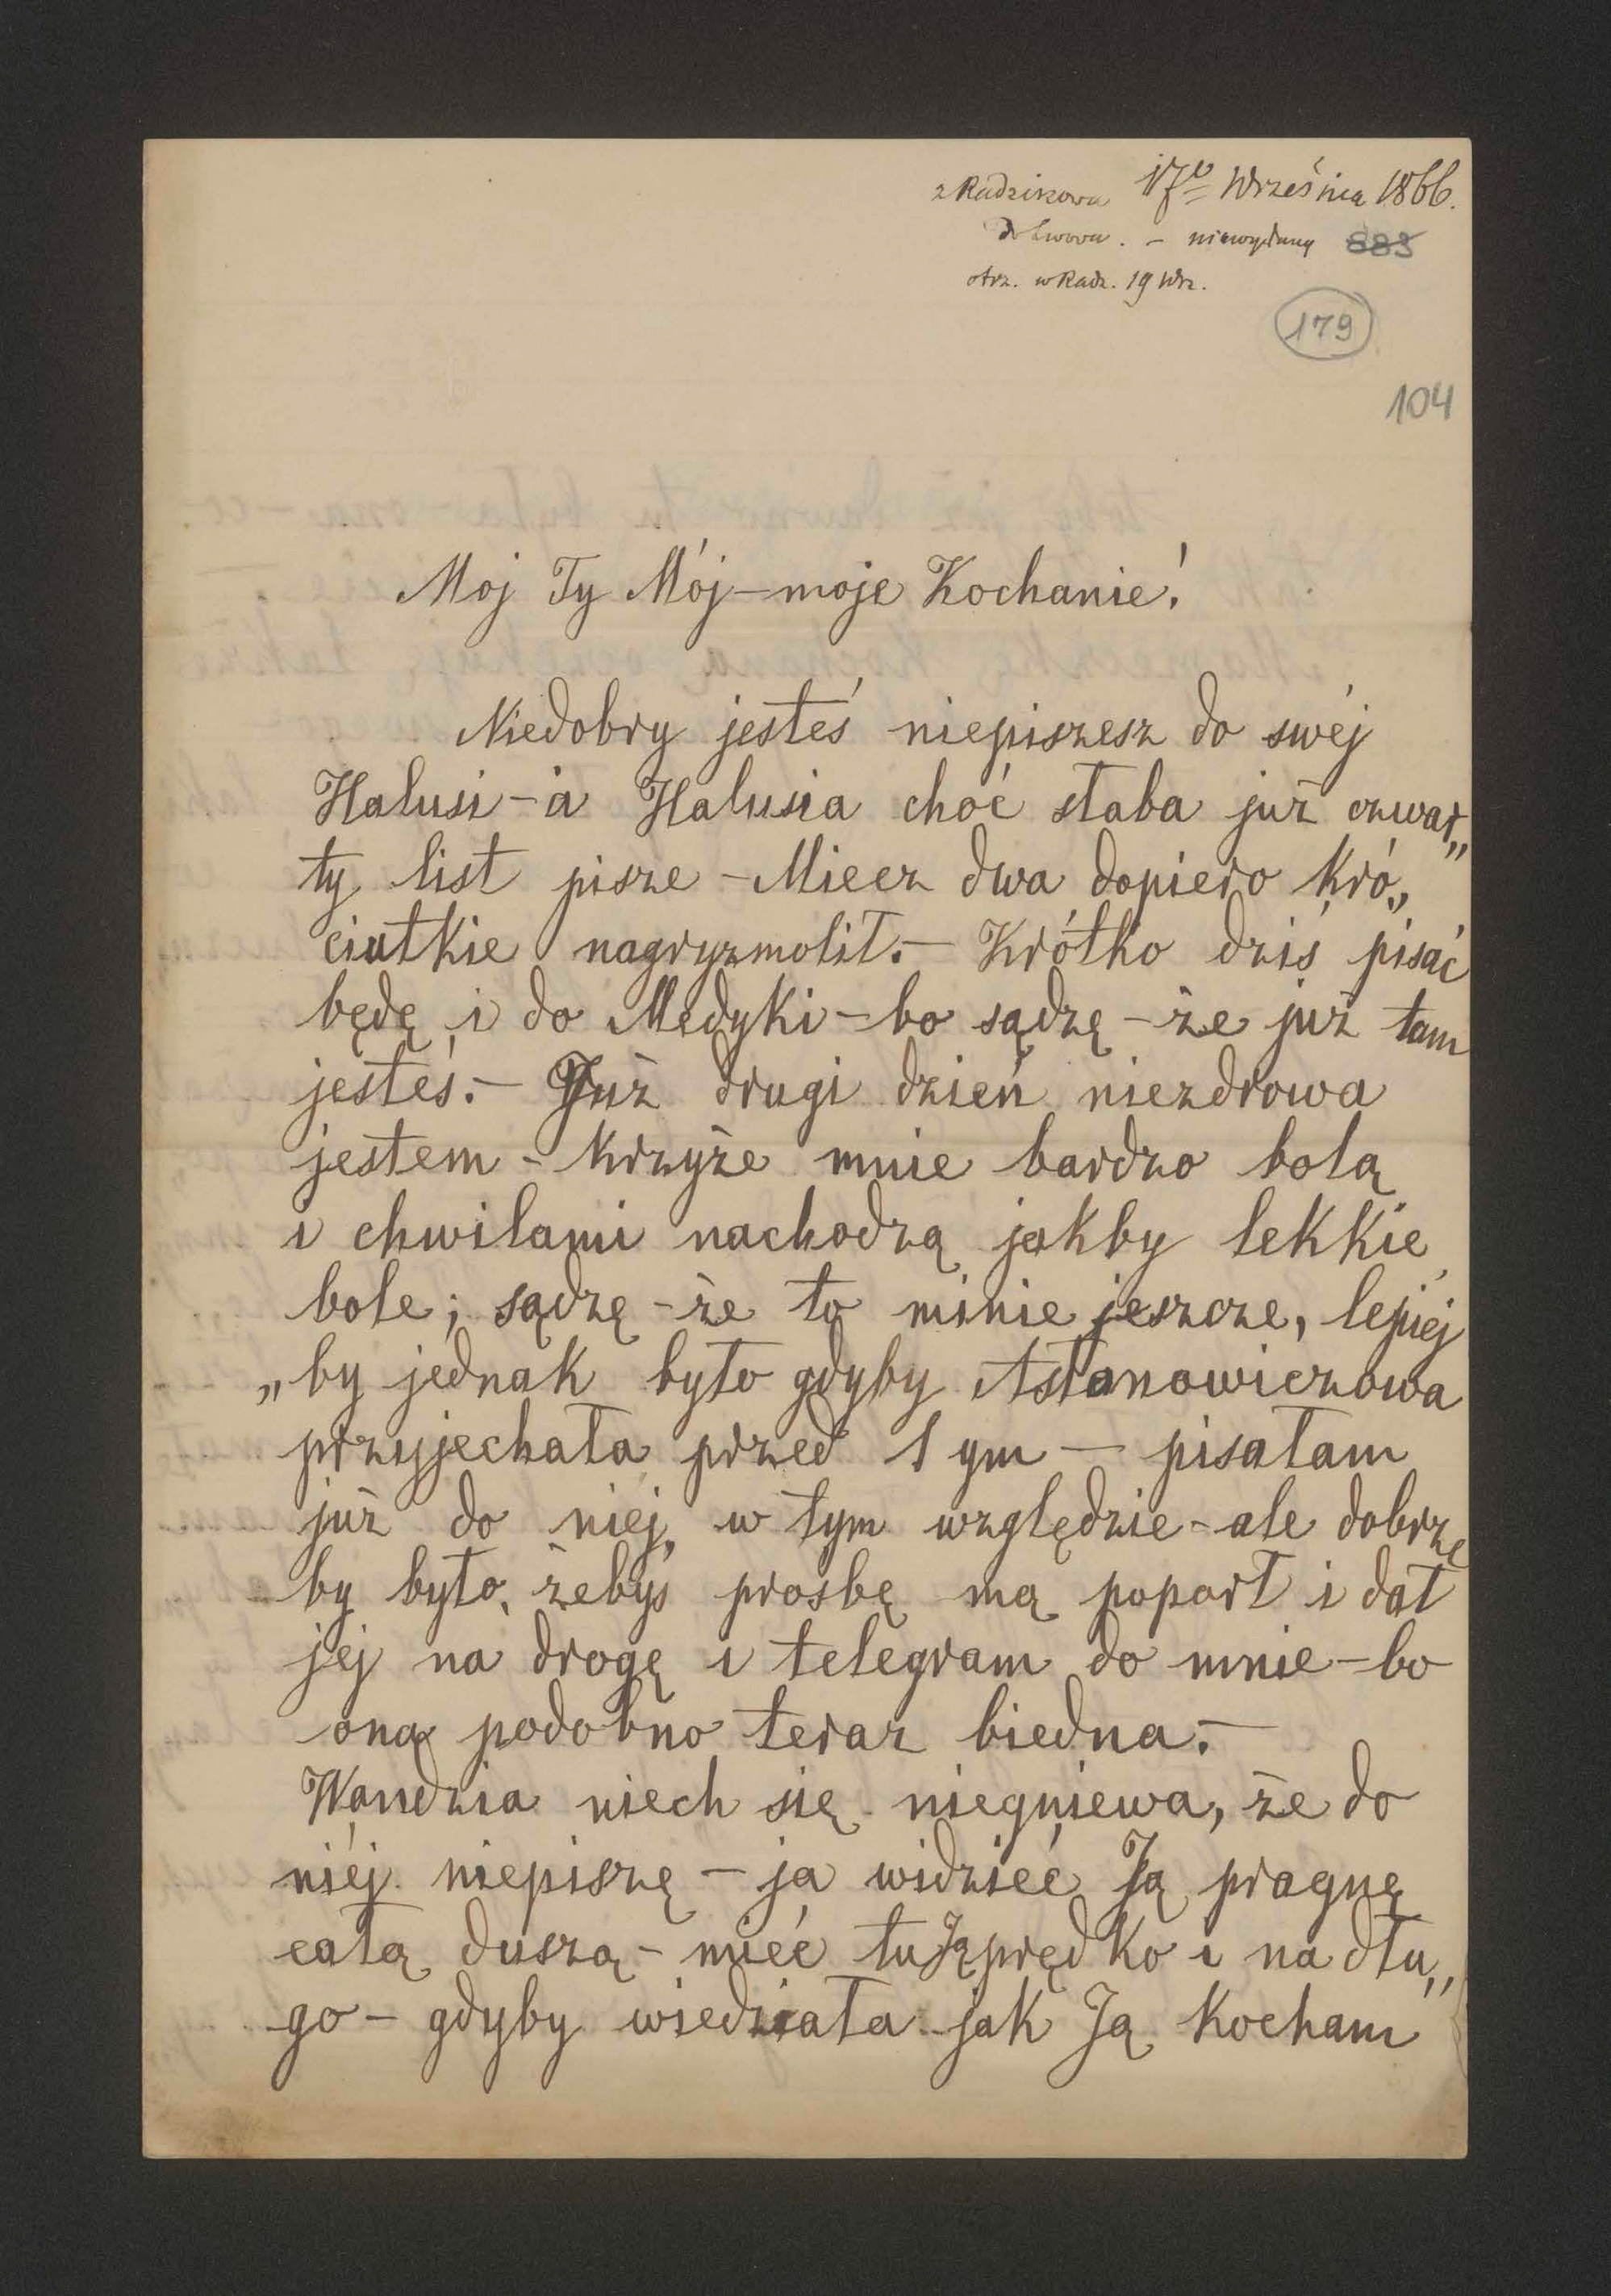 z Radziszowa 17go Września 1866.
do Lwowa. - niewydany 883
otrz. w Radz. 19 Wrz.
179
104
Moj Ty Mój - moje Kochanie!
Niedobry jesteś niepiszesz do swéj
Halusi - a Halusia choć słaba już czwar„
ty list pisze - Miecz dwa dopiero kró„
ciutkie nagryzmolił. - Krótko dziś pisać
będę i do Medyki - bo sądzę - że już tam
jesteś. - Już drugi dzień niezdrowa
jestem - krzyże mnie bardzo bolą
i chwilami nachodzą jakby lekkie
bole; sądzę - że to minie jeszcze, lepiéj
„by jednak było gdyby Astanowiczowa
przyjechała przed 1 ym - pisałam
już do niéj w tym względzie - ale dobrze
by było, żebyś prosbę mą poparł i dał
jej na drogę i telegram do mnie - bo
ona podobno teraz biedna. -
Wandzia niech się niegniewa, że do
niéj niepiszę - ja widzieć Ją pragnę
całą duszą - mieć tu Ją prędko i na dłu„
go - gdyby wiedziała jak Ją kocham